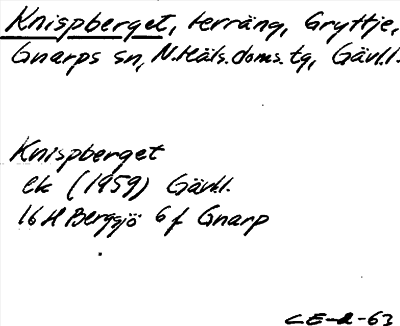 Knispberget, terräng, Gryttje,
Gnarps sn, N.Häls.doms.tg, Gävl.l.
Knispberget
ek (1959) Gävl.l.
16 H Bergsjö 6 f Gnarp